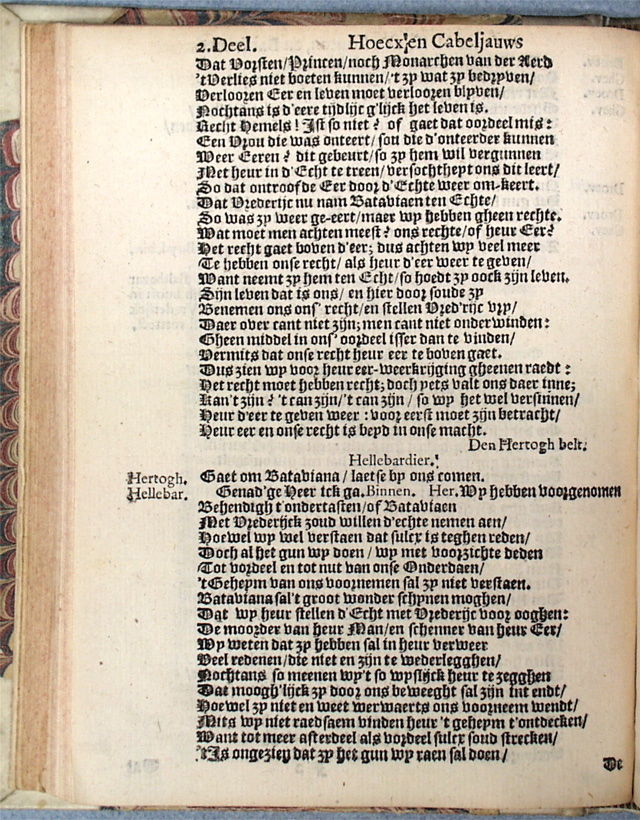 2.Deel. Hoecx, en Cabeljauws
Dat Vorsten/Princen/noch Monarchen van der Aerd
'tVerlies niet boeten kunnen/'t zy wat zy bedryven/
Verlooren Eer en leven moet verlooren blyven/
Nochtans is d'eere tijdlijc g'lijck het leven is.
Recht Hemels! Ist so niet? of gaet dat oordeel mis:
Een Vrou die was onteert/sou die d'onteerder kunnen
Weer Eeren? dit gebeurt/so zy hem wil vergunnen
Met heur in d'Echt te treen/versochtheyt ons dit leert/
So dat ontroofde Eer door d'Echte weer om-keert.
Dat Vrederijc nu nam Bataviaen ten Echte/
So was zy weer ge-eert/maer wy hebben gheen rechte.
Wat moet men achten meest? ons rechte/of heur Eer?
Het recht gaet boven d'eer; dus achten wy veel meer
Te hebben onse recht/als heur d'eer weer te geven/
Want neemt zy hem ten Echt/so hoedt zy oock zijn leven.
Sijn leven dat is ons/en hier door soude zy
Benemen ons ons' recht/en stellen Vred'rijc vry/
Daer over cant niet zijn; men cant niet onderwinden:
Gheen middel in ons' oordeel isser dan te vinden/
Vermits dat onse recht heur eer te boven gaet.
Dus zien wy voor heur eer-weerkrijging gheenen raedt:
Het recht moet hebben recht; doch yets valt ons daer inne;
Kan't zijn? 't can zijn/'t can zijn/so wy het wel versinnen/
Heur d'eer te geven weer: voor eerst moet zijn betracht/
Heur eer en onse recht is beyd in onse macht.
Den Hertogh belt.
Hellebardier.
Hertogh. Gaet om Bataviana/laetse by ons comen.
Hellebar. Genad'ge Heer ick ga. Binnen. Her. Wy hebben voorgenomen
Behendigh t'ondertasten/of Bataviaen
Met Vrederijck zoud willen d'echte nemen aen/
Hoewel wy wel verstaen dat sulcx is teghen reden/
Doch al het gun wy doen/wy met voorzichte deden
Tot vordeel en tot nut van onse Onderdaen/
'tGeheym van ons voornemen sal zy niet verstaen.
Bataviana sal't groot wonder schynen moghen/
Dat wy heur stellen d'Echt met Vrederijc voor ooghen:
De moorder van heur Man/en schenner van heur Eer/
Wy weten dat zy hebben sal in heur verweer
Veel redenen/die niet en zijn te wederlegghen/
Nochtans so meenen wy't so wyslijck heur te zegghen
Dat moogh'lijck zy door ons beweeght sal zijn int endt/
Hoewel zy niet en weet werwaerts ons voorneem wendt/
Mits wy niet raedsaem vinden heur 't geheym t'ontdecken/
Want tot meer afterdeel als vordeel sulcx soud strecken/
'tIs ongezien dat zy het gun wy raen sal doen/
De